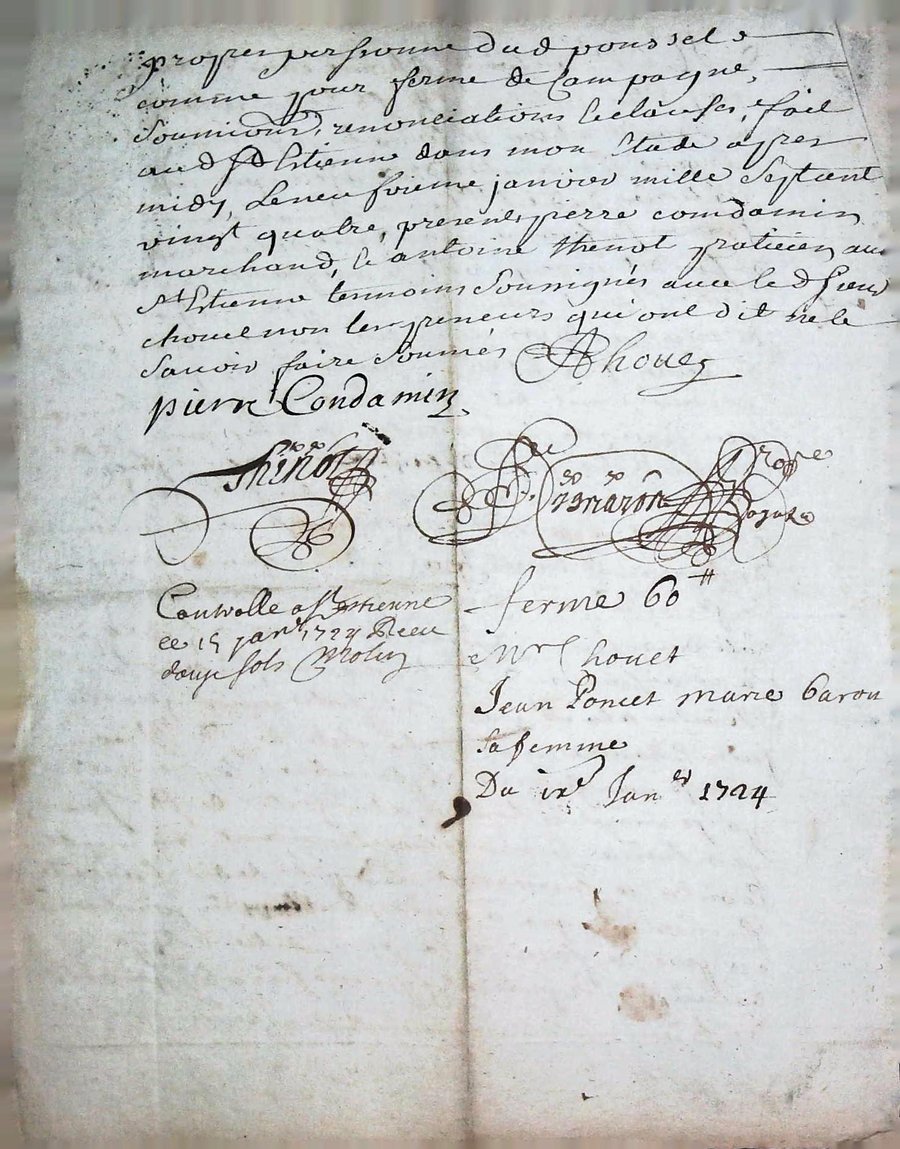 propre personne dud ponsset
comme pour ferme de Campagne,
Soumions, renonciations & clauses, fait
aud St Estienne dans mon Etude apres
midy, Le neufvieme janvier mille Septcent
vingt quatre, presents pierre comdamin
marchand, & antoine thenot praticien aud
St Estienne temoins Soussignés avec led Sieur
chouet non les preneurs qui ont dit ne le
Savoir faire Sommés
AChouet
pierre Condamin
Thenot
Controlle a St Estienne
ce 15 janer 1724 Receu
douze sols Molin
ferme 60#
Mr Chouet
Jean Poncet marie Baron
sa femme
Du ixe Janer 1724